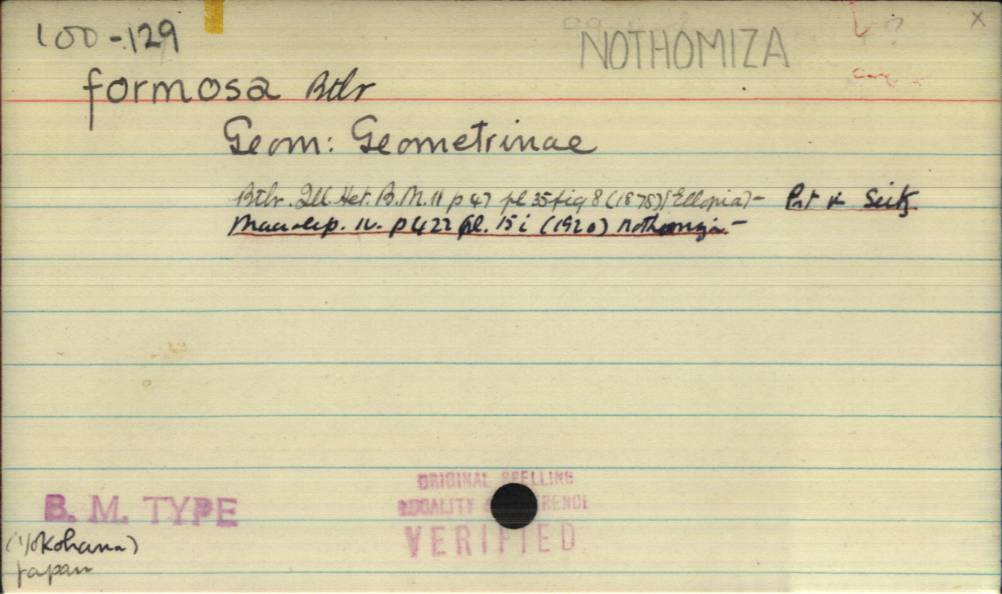 100-129
NOTHOMIZA
X
formosa Btlr
Geom: Geometrinae
Btlr. Ill. Het. B.M. II p 47 pl 35 fig 8 (1878) (Ellopia) – Prt in Seitz
Macrolep. IV. p 422 pl. 15 i (1920) Nothomiza –
B. M. TYPE
ORIGINAL SPELLING
VERIFIED
(Yokohama)
Japan